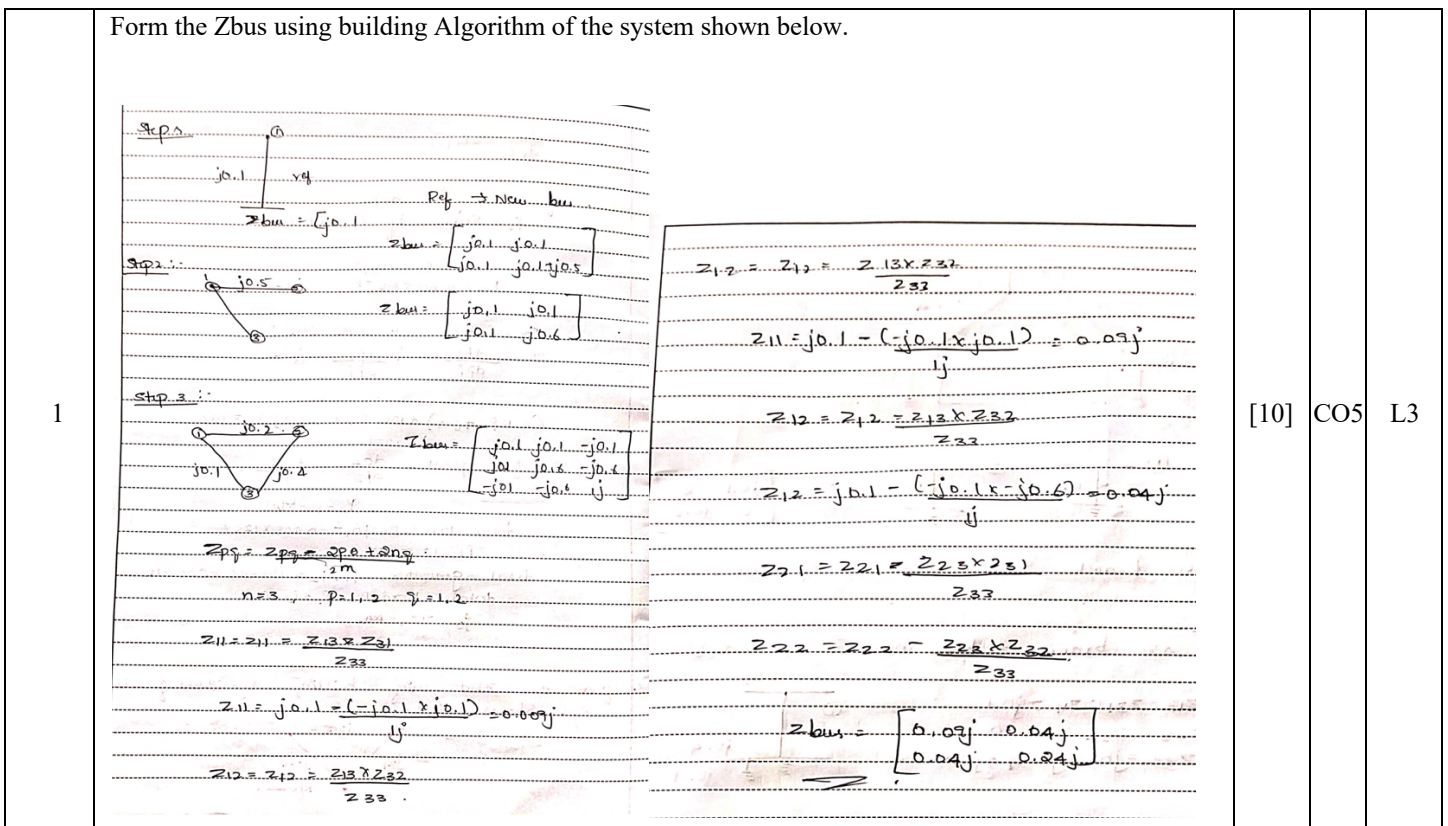 Form the Zbus using building Algorithm of the system shown below.
1
[10]
CO5
L3
Step 1
①
j0.1
ref
Zbus = [j0.1
Ref → New bus
Zbus = [ j0.1 j0.1
j0.1 j0.1+j0.5 ]
Step 2 :-
1 j0.5
③
Zbus = [ j0.1 j0.1
j0.1 j0.6 ]
Step 3 :-
① j0.2 ②
j0.1 j0.4
③
Zbus = [ j0.1 j0.1 -j0.1
j01 j0.6 -j0.6
-j01 -j0.6 1j ]
Zpq = Zpq -
n=3 , P=1,2 q=1,2
Z11 = Z11 = Z13 x Z31
Z33
Z11 = j0.1 - (-j0.1 x j0.1) = 0.009j
1j
Z12 = Z12 = Z13 x Z32
Z33 .
Z12 = Z12 = Z13 x Z32
Z33
Z11 = j0.1 - (-j0.1 x j0.1) = 0.09j
1j
Z12 = Z12 = Z13 x Z32
Z33
Z12 = j0.1 - (-j0.1 x -j0.6) = 0.04j
1j
Z21 = Z21 = Z23 x Z31
Z33
Z22 = Z22 - Z23 x Z32
Z33
Zbus = [ 0.09j 0.04j
0.04j 0.24j ]